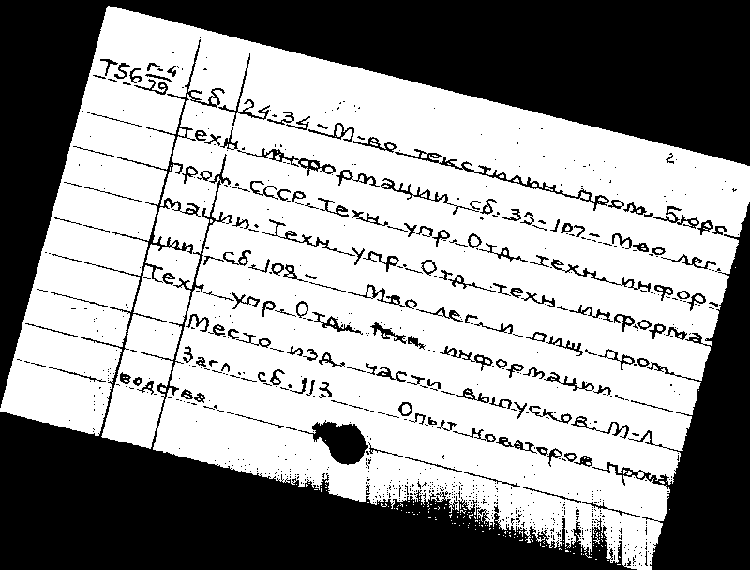 Т56 Г-4/79 сб. 24-34 - М-во текстильн. пром. Бюро
техн. информации; сб. 35-107 - М-во лег.
пром. СССР. Техн. упр. Отд. техн. инфор-
мации. Техн. упр. Отд. техн. информа-
ции; сб. 108 - М-во лег. и пищ. пром.
Техн. упр. Отд. техн. информации.
Место изд. части выпусков: М-Л.
Загл.: сб. 113 Опыт новаторов произ
водства.